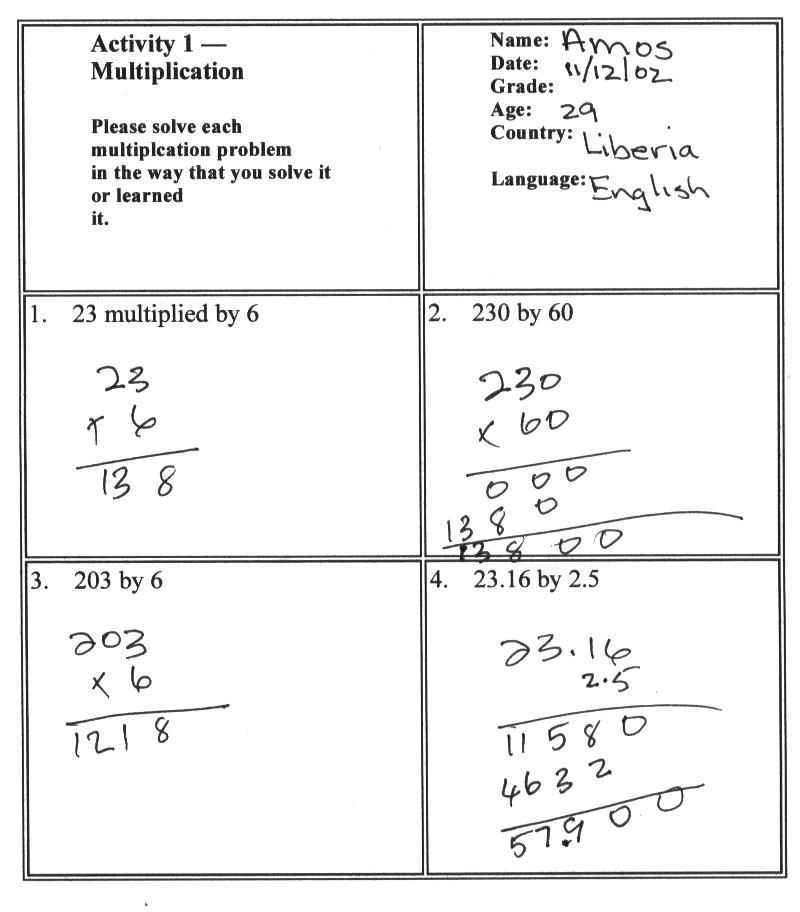 Activity 1 —
Multiplication
Please solve each
multiplcation problem
in the way that you solve it
or learned
it.
Name: Amos
Date: 11/12/02
Grade:
Age: 29
Country: Liberia
Language: English
1. 23 multiplied by 6
23
× 6
138
2. 230 by 60
230
× 60
000
1380
13800
3. 203 by 6
203
× 6
1218
4. 23.16 by 2.5
23.16
2.5
11580
4632
57.900